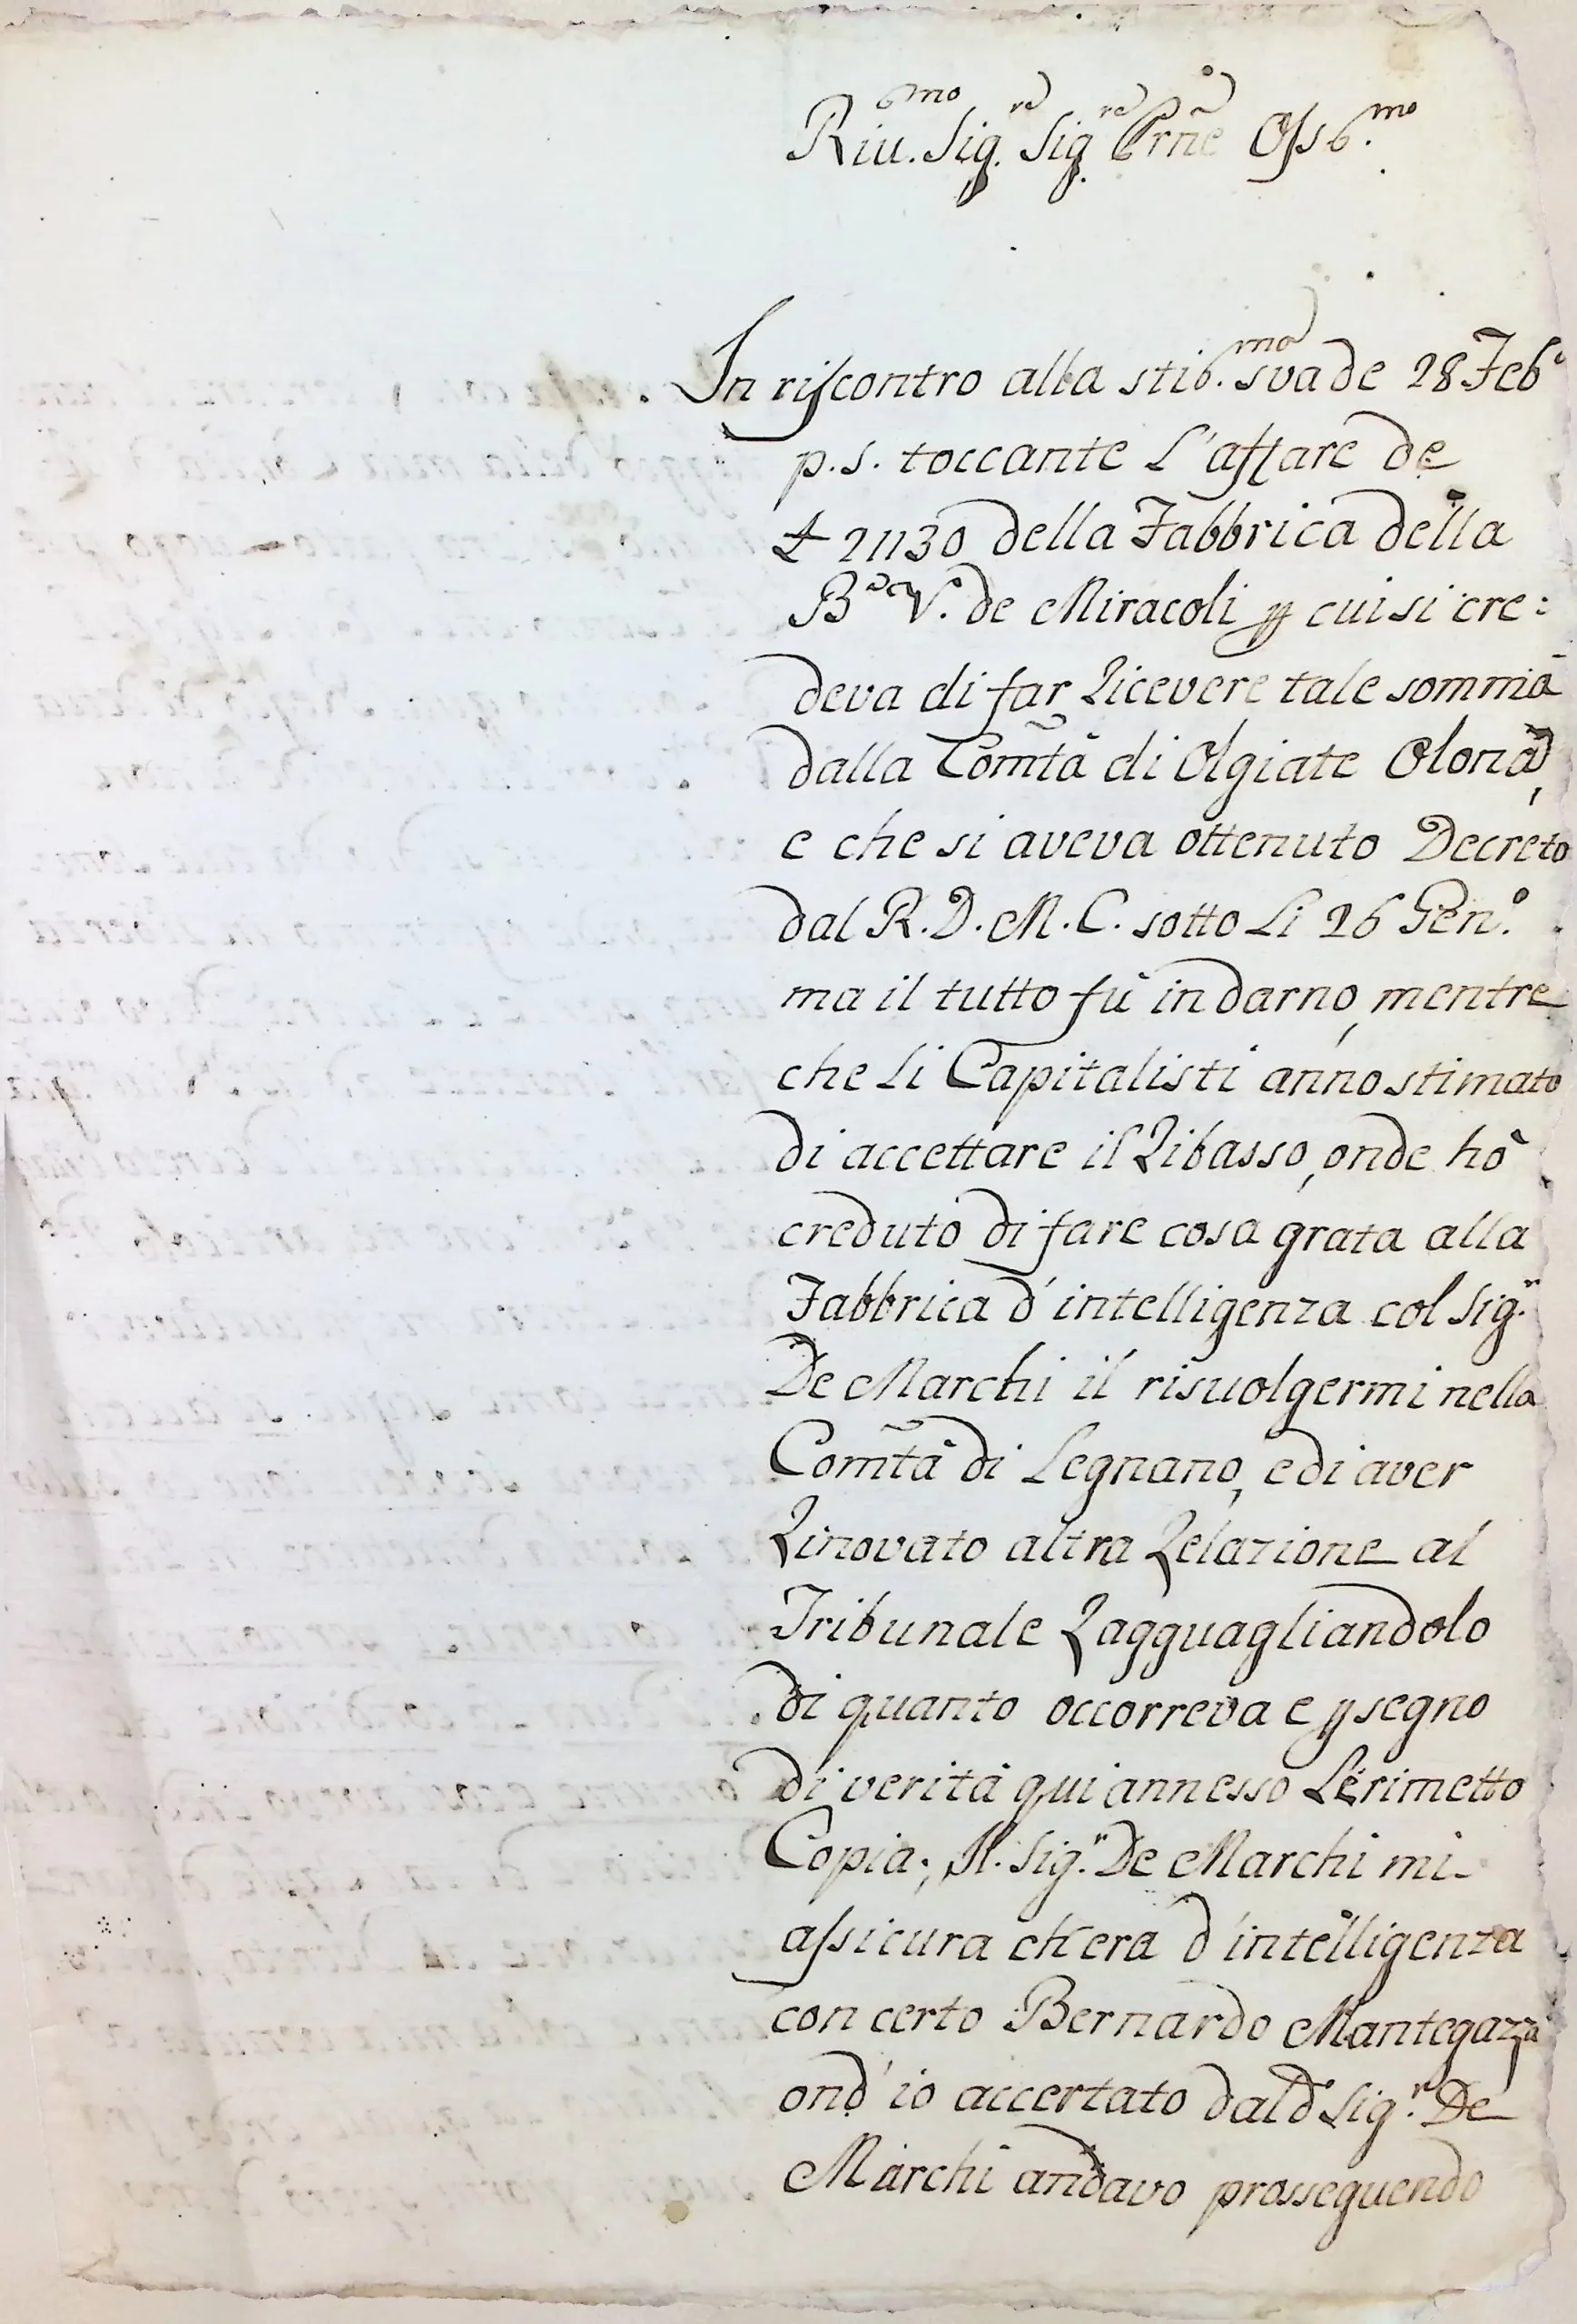 Riv.mo Sig.re Sig.re Prñe Oss.mo
In riscontro alla stis.ma sua de 28 Feb.o
p.s. toccante L'affare de
£ 21130 della Fabbrica della
B.ta V.e de Miracoli p cui si cre:
deva di far Ricevere tale somma
dalla Com̃tà di Olgiate Olona,
e che si aveva ottenuto Decreto
dal R.D.M.C. sotto Li 26 Gen.o
ma il tutto fù indarno, mentre
che Li Capitalisti anno stimato
di accettare il Ribasso, onde hò
creduto di fare cosa grata alla
Fabbrica d'intelligenza col Sig.r
De Marchi il risvolgermi nella
Com̃tà di Legnano, e di aver
Rinovato altra Relazione al
Tribunale Ragguagliandolo
di quanto occorreva e p segno
di verità qui annesso Le rimetto
Copia; Il Sig.r De Marchi mi
assicura ch'era d'intelligenza
con certo Bernardo Mantegazza
ond'io accertato dal d.o Sig.r De
Marchi andavo prosseguendo